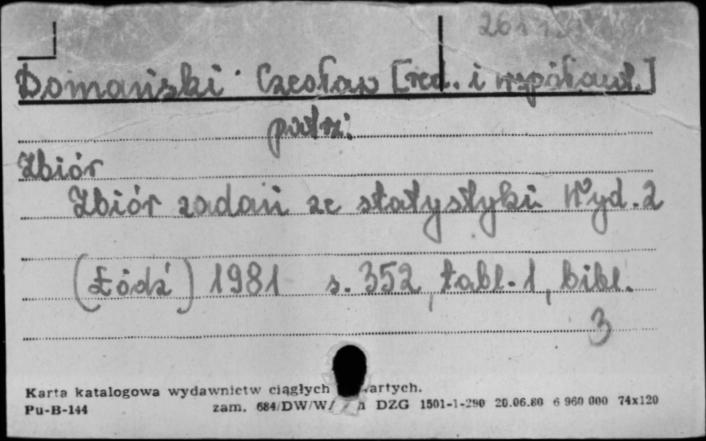 Domański Czesław [red. i współaut.]
patrz:
Zbiór
Zbiór zadań ze statystyki Wyd. 2
(Łódź) 1981 s. 352, tabl. 1, bibl.
3
Karta katalogowa wydawnictw ciągłych
Pu-B-144 zam. 684/DW/W/ DZG 1501-1-290 20.06.80 6 960 000 74x120